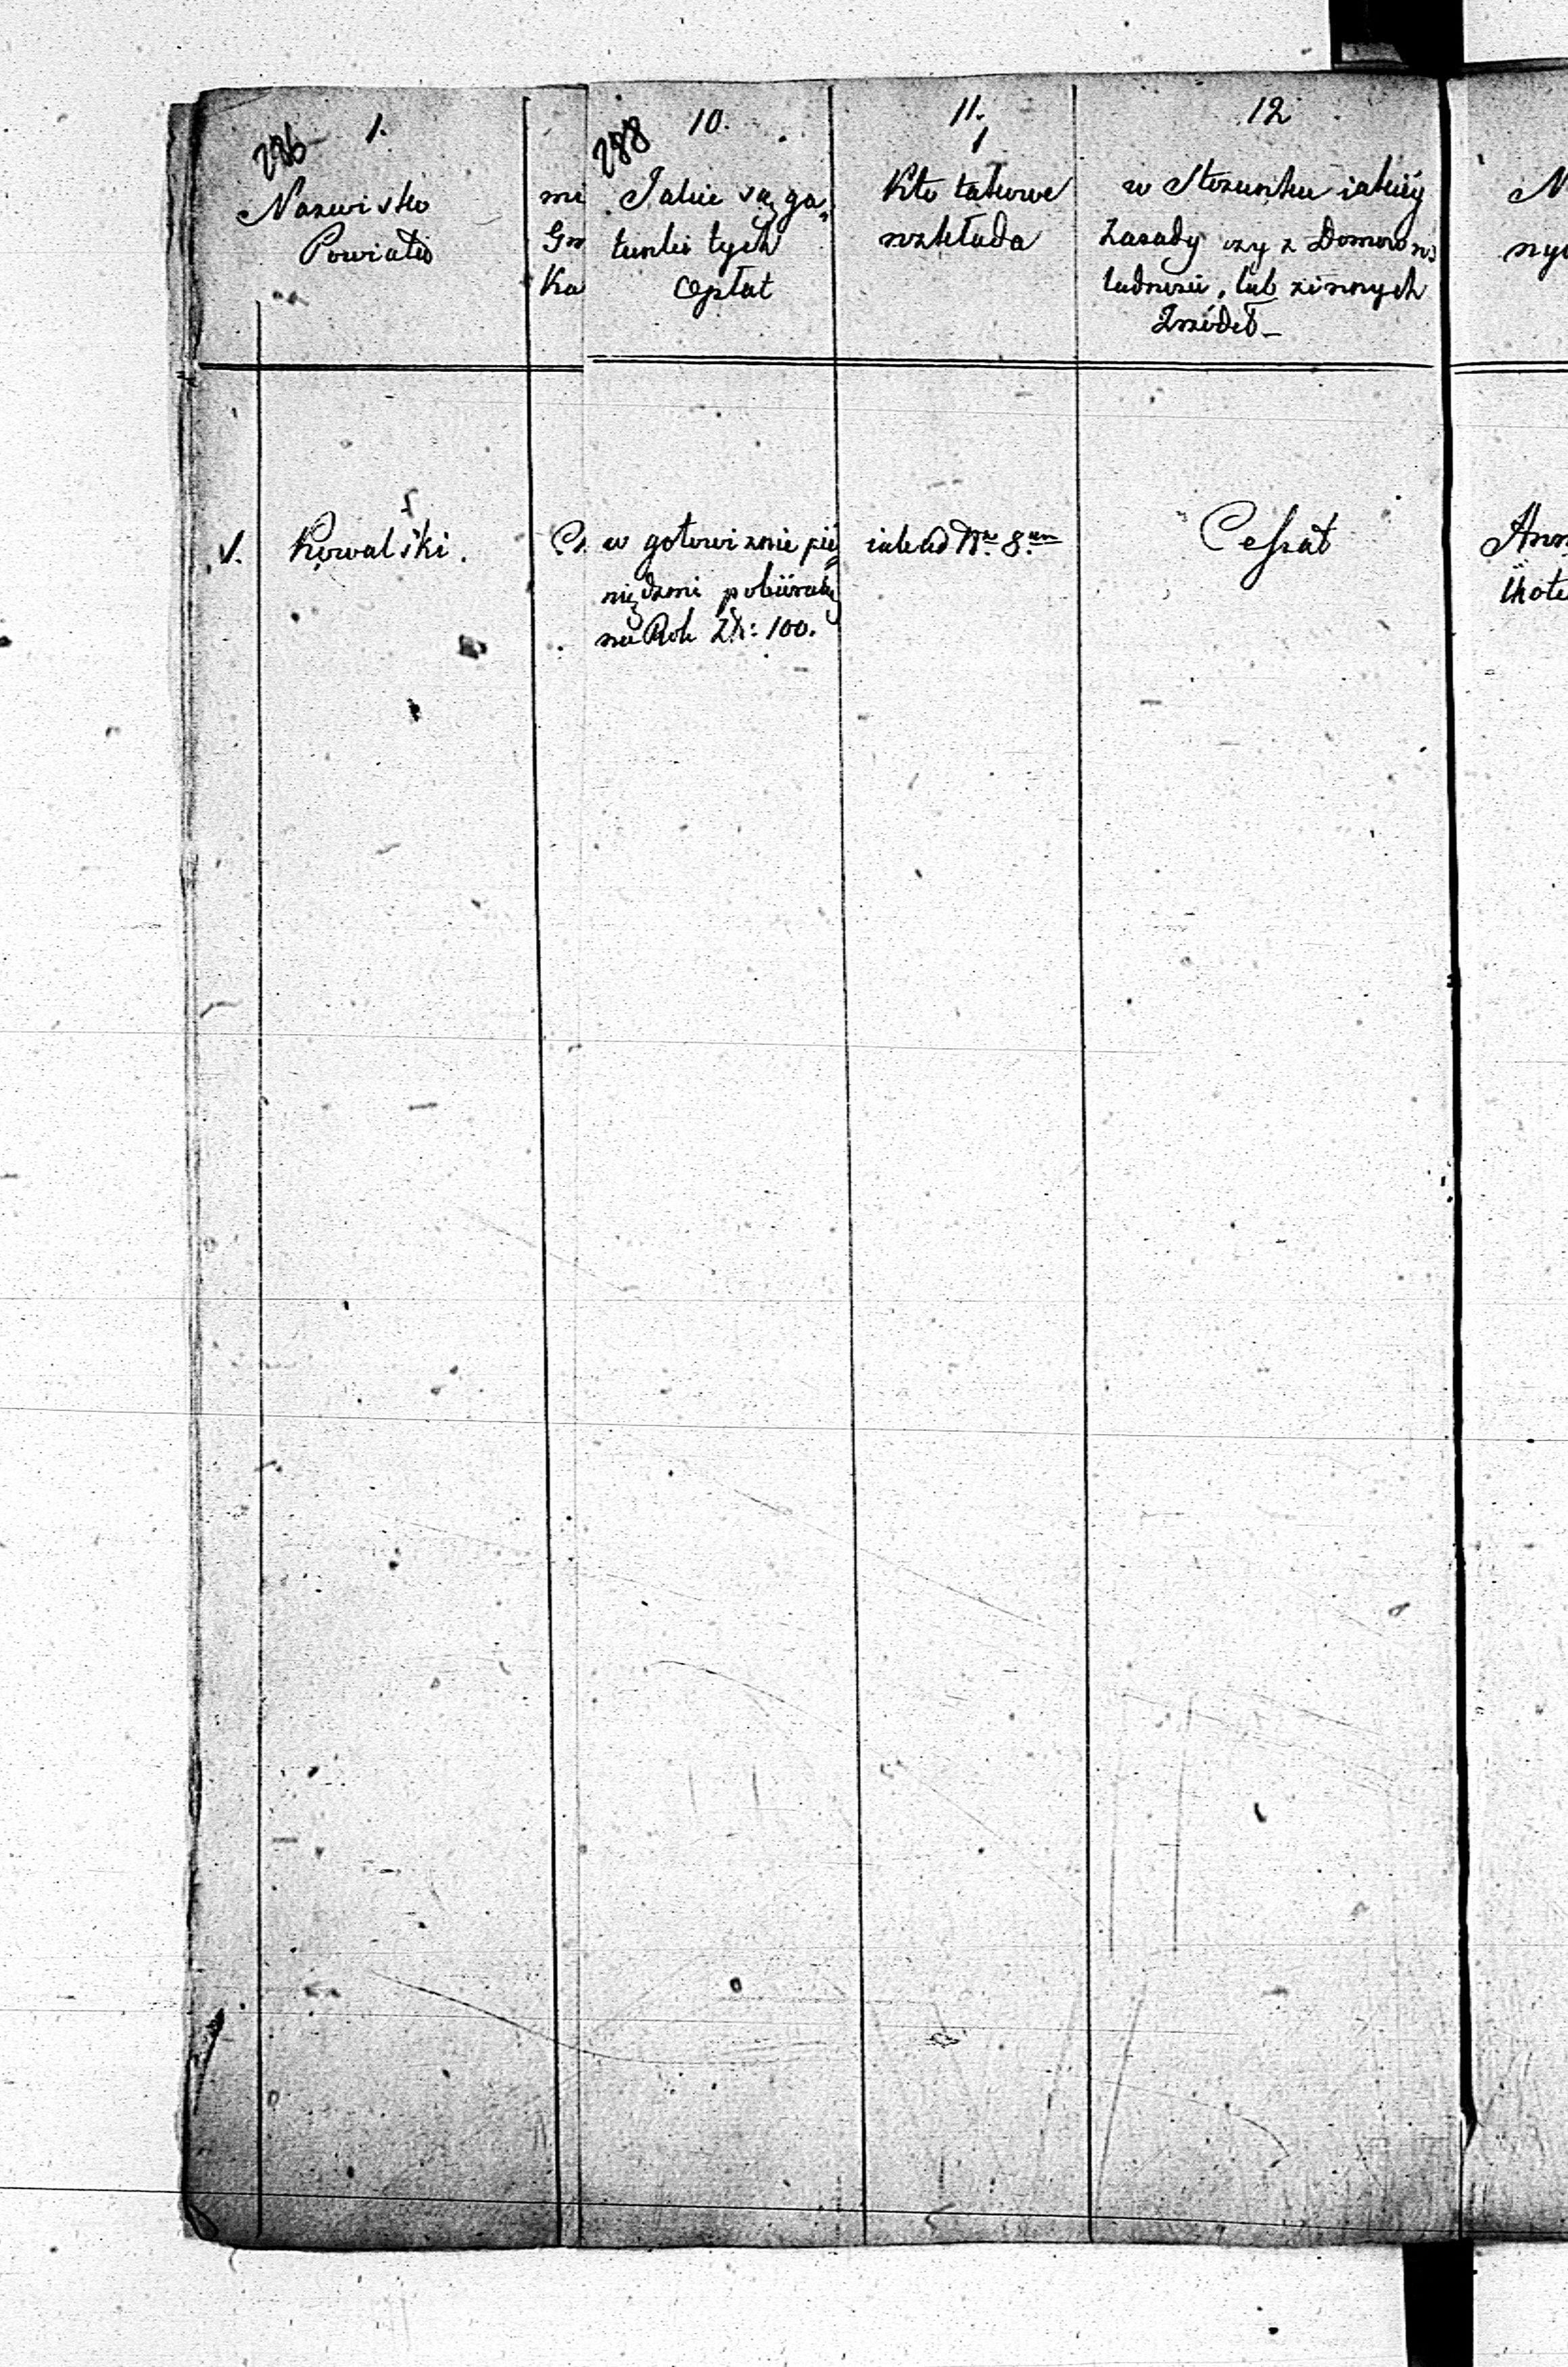 286
1.
Nazwisko
Powiatu
mi
Gm
Ka
288
10.
Jakie są ga„
tunki tych
Opłat
11.
Kto takowe
rozkłada
12
w Stosunku iakiéy
Zasady czy z Domow
ludności, lub z innych
Źrzódeł_
N
nyc
V.
Kowalski.
w gotowiznie pié„
niędzmi pobierali
na Rok Zł: 100.
iak ad N.ro 8.um
Cessat